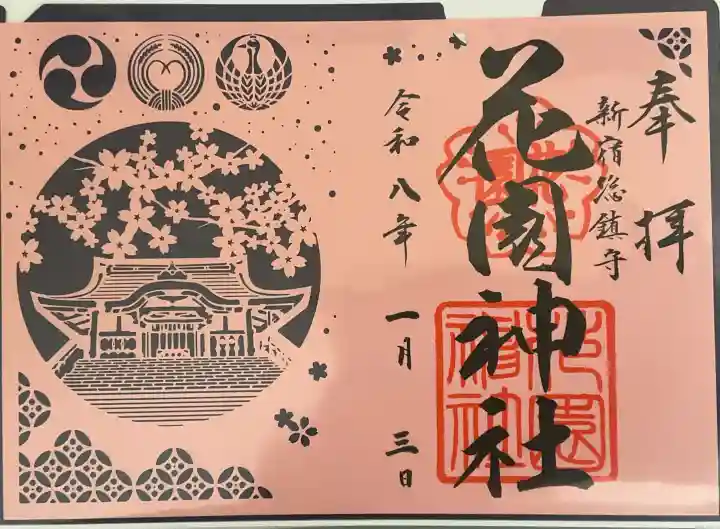 奉拝
新宿総鎮守
花園神社
花園神社
令和八年 一月 三日